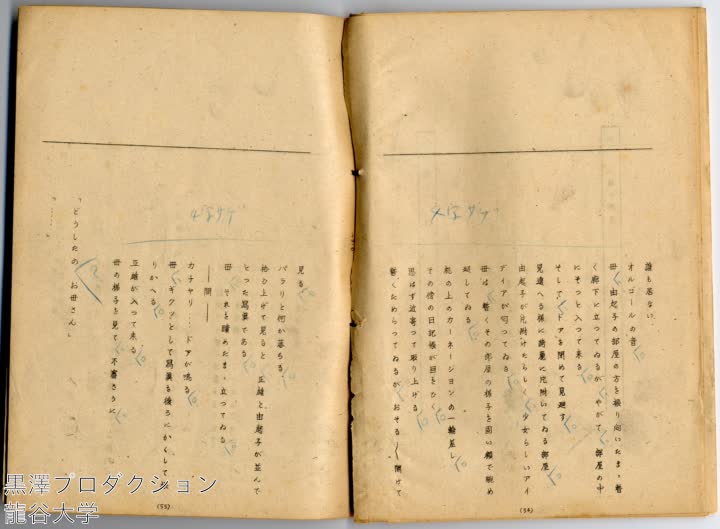 誰も居ない。
オルゴールの音。
母、由起子の部屋の方を振り向いたまゝ暫
く廊下に立つてゐるが、やがて、部屋の中
にそつと入つて来る。
そして、ドアを閉めて見廻す。
見違へる様に綺麗に片附いてゐる部屋。
由起子が片附けたらしく、少女らしいアイ
ディアが匂つてゐる。
母は、暫くその部屋の様子を固い顔で眺め
廻してゐる。
机の上のカーネーションの一輪差し。
その傍の日記帳が目をひく。
思はず近寄つて取り上げる。
暫くためらつてゐるが、おそる／＼開けて
(54)
文字サゲ
見る。
バラリと何か落ちる。
拾ひ上げて見ると、正雄と由起子が並んで
とつた写真である。
母、それを睛めたまゝ、立つてゐる。
――間――
カチャリ……ドアが鳴る。
母、ギクッとして写真を後ろにかくして振
りかへる。
正雄が入つて来る。
母の様子を見て、不審さうに、
「どうしたの、お母さん」
「……」
(55)
文字サゲ
黒澤プロダクション
龍谷大学